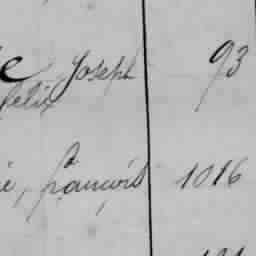 e Joseph 93
felix
e, francois 1016